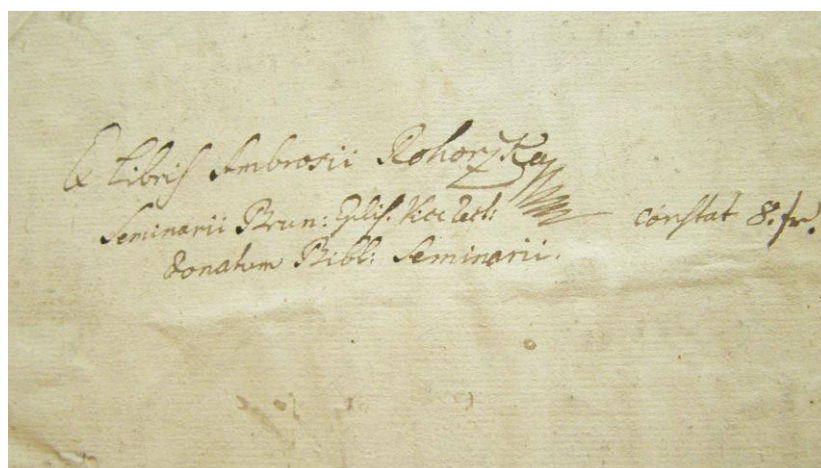 Ex Libris Ambrosii Rohorzka
Seminarii Brun: Epis. Vice Rect: constat 8. fr.
donatum Bibl: Seminarii.